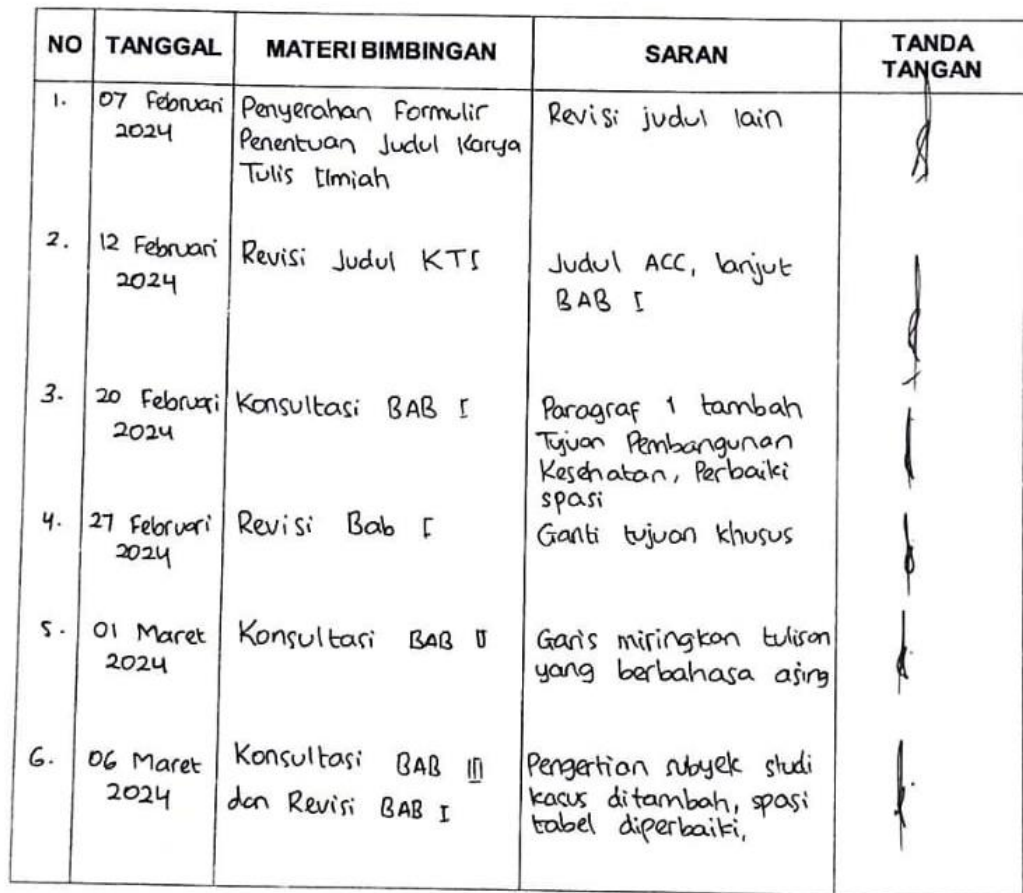 NO TANGGAL MATERI BIMBINGAN SARAN TANDA TANGAN
1. 07 Februari 2024
Penyerahan Formulir
Penentuan Judul Karya
Tulis Ilmiah
Revisi judul lain
2. 12 Februari 2024
Revisi Judul KTI
Judul ACC, lanjut
BAB I
3. 20 Februari 2024
Konsultasi BAB I
Paragraf 1 tambah
Tujuan Pembangunan
Kesehatan, Perbaiki
spasi
4. 27 Februari 2024
Revisi Bab I
Ganti tujuan khusus
5. 01 Maret 2024
Konsultasi BAB II
Garis miringkan tulisan
yang berbahasa asing
6. 06 Maret 2024
Konsultasi BAB III
dan Revisi BAB I
Pengertian subyek studi
kasus ditambah, spasi
tabel diperbaiki.